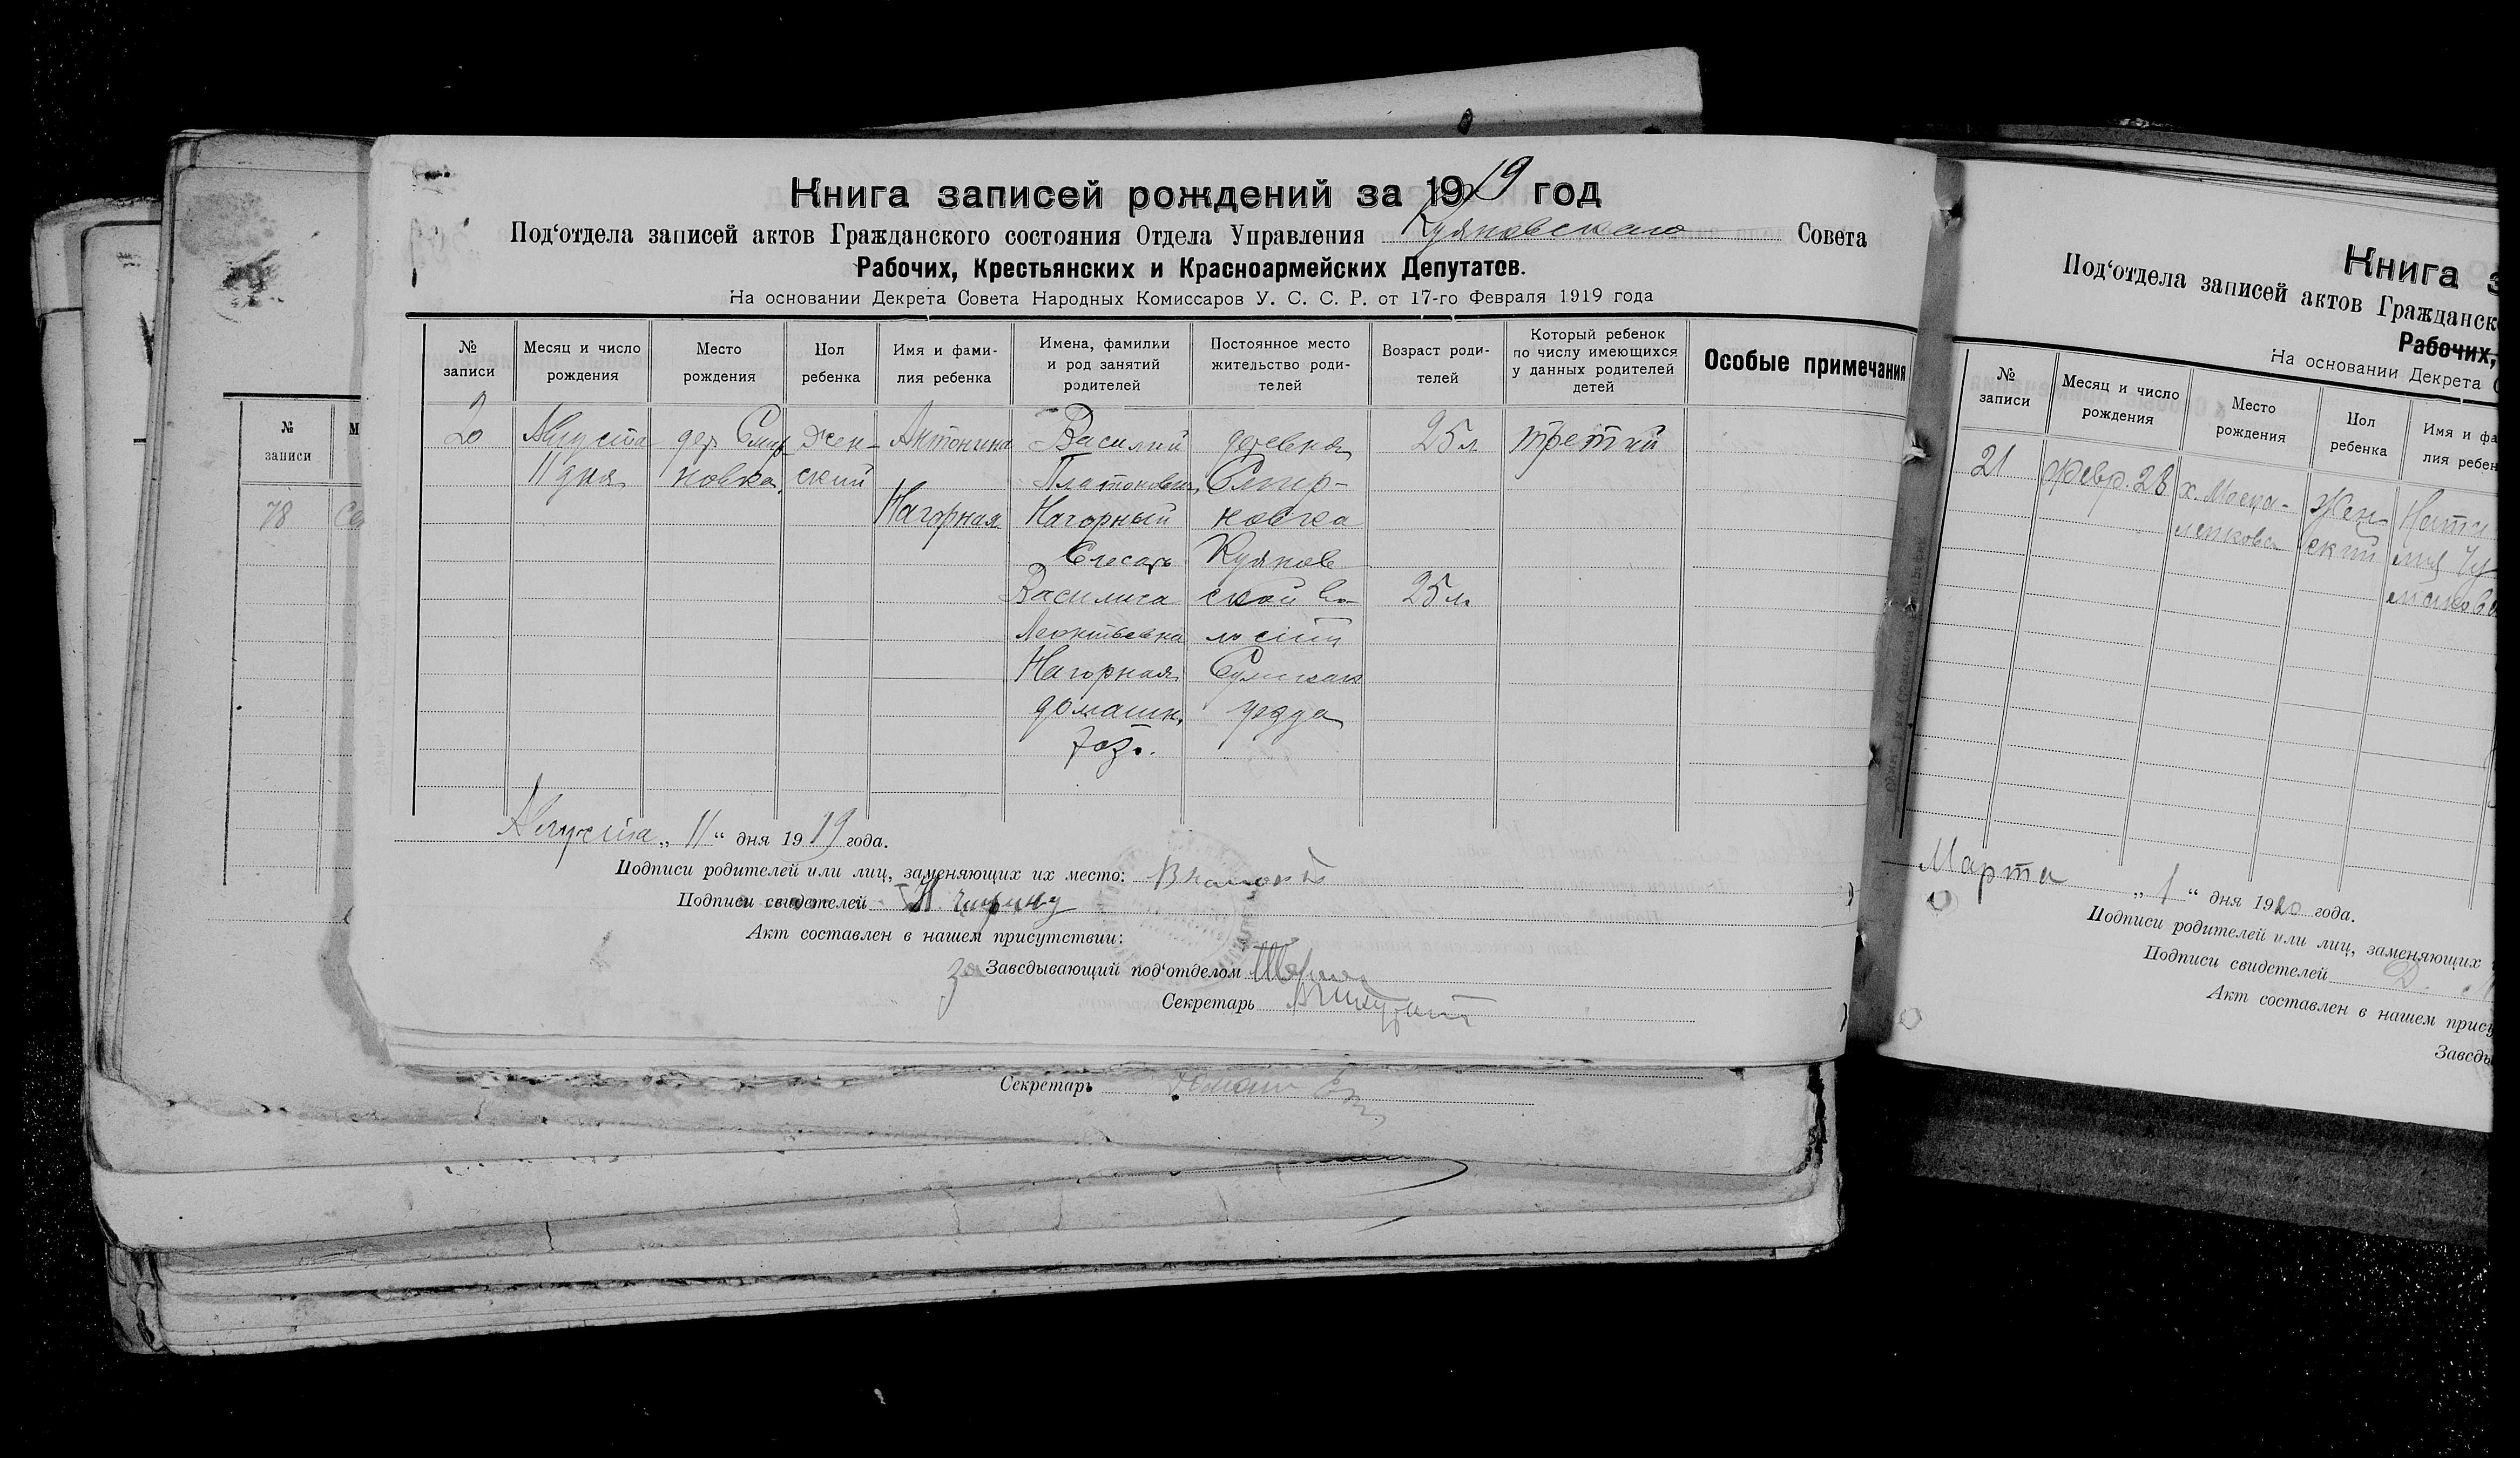 Книга записей рождений за 1919 год
Под‘отдела записей актов Гражданского состояния Отдела Управления Куяновскаго Совета
Рабочих, Крестьянских и Красноармейских Депутатов.
На основании Декрета Совета Народных Комиссаров У. С. С. Р. от 17-го Февраля 1919 года
№ записи
Месяц и число рождения
Место рождения
Пол ребенка
Имя и фами-
лия ребенка
Имена, фамилии
и род занятий
родителей
Постоянное место
жительство роди-
телей
Возраст роди-
телей
Который ребенок
по числу имеющихся
у данных родителей
детей
Особые примечания
20 Августа дер. Жен- Антонина Василий деревня 25 л третий
11 дня новка ский Платонович
Нагорная Нагорный новка
Слесарь Куянов
Василиса ской во- 25 л.
Леонтьевна лости
Нагорная Сумскаго
домашн. уезда
хоз.
Августа „ 11 “ дня 1919 года.
Подписи родителей или лиц, заменяющих их место:
Подписи свидетелей
Акт составлен в нашем присутствии:
За Заведывающий под‘отделом
Секретарь
Секретарь
№ записи
М
78
Книга з
Под‘отдела записей актов Гражданск
Рабочих,
На основании Декрета С
№ записи
Месяц и число рождения
Место рождения
Пол ребенка
Имя и фа
лия ребен
21 Февр. 28 х. Жен-
ский
Марта „ 1 “ дня 1920 года.
Подписи родителей или лиц, заменяющих
Подписи свидетелей Д.
Акт составлен в нашем прису
Заведы